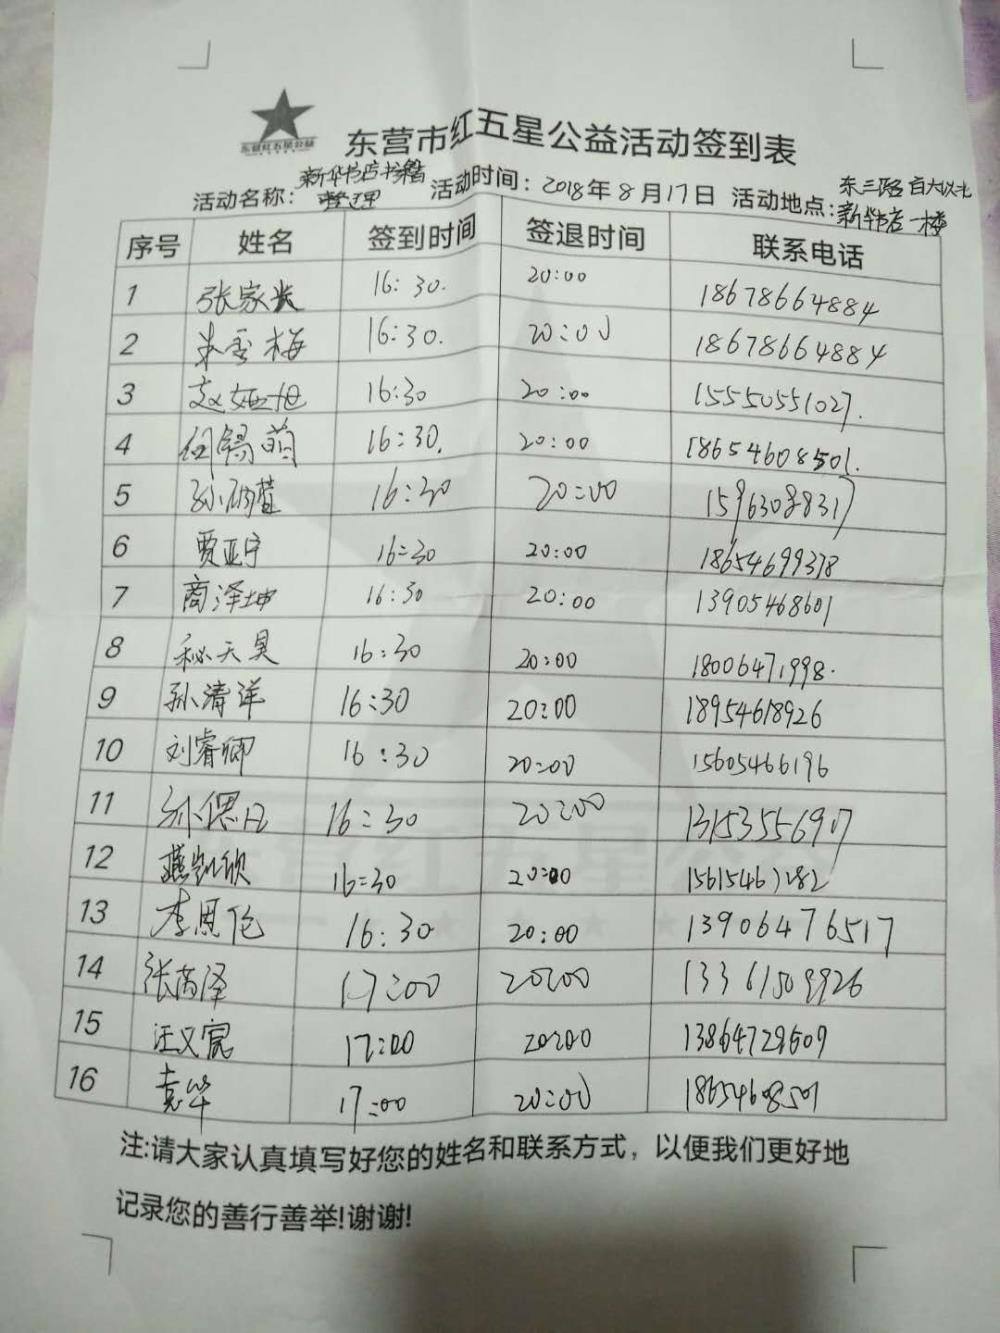 东营红五星公益
东营市红五星公益活动签到表
活动名称：新华书店书籍整理 活动时间：2018年8月17日 活动地点：东三路百大以北新华书店一楼
序号 姓名 签到时间 签退时间 联系电话
1 张家兴 16:30. 20:00 18678664884
2 朱秀梅 16:30. 20:00 18678664884
3 赵姬旭 16:30 20:00 15550551027.
4 何锡萌 16:30. 20:00 18654608501.
5 孙萱 16:30 20:00 15963088317
6 贾亚宁 16:30 20:00 18654699378
7 商泽坤 16:30 20:00 13905468601
8 秘天昊 16:30 20:00 18006471998.
9 孙清洋 16:30 20:00 18954618926
10 刘睿卿 16:30 20:00 15605466196
11 孙偲凡 16:30 20:00 13153556907
12 燕凯欣 16:30 20:00
13 李恩伦 16:30 20:00 13906476517
14 张芮泽 17:00 20:00 13361509926
15 汪又宽 17:00 20:00 13864729609
16 袁华 17:00 20:00 18654608501
注:请大家认真填写好您的姓名和联系方式，以便我们更好地
记录您的善行善举!谢谢!